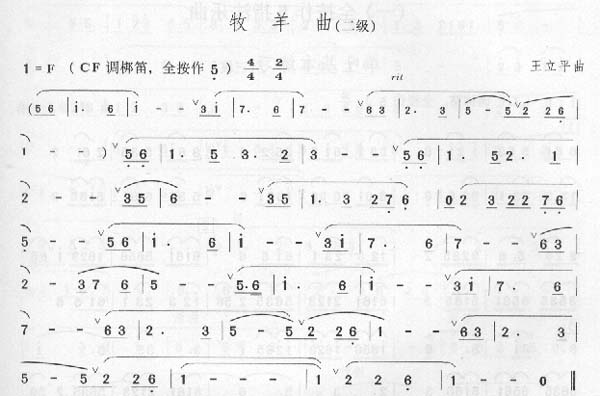 牧 羊 曲(二级)
1=F （CF 调梆笛，全按作 5） 4/4 2/4 王立平曲
rit
(5 6 | i. 6 | i ∨3 i | 7. 6 7 - - ∨6 3 | 2. 3 | 5 - 5 ∨2 2 2 6 |
1 - - ) ∨5 6 | 1. 5 3. 2 | 3 - - ∨5 6 | 1. 5 2. 1 |
2 - - ∨3 5 | 6 - - ∨3 5 | 1. 3 2 7 6 | 0 2 3 2 2 7 6 |
5 - - ∨5 6 | i. 6 | i - - ∨3 i | 7. 6 7 - - ∨6 3 |
2 - - 3 7 6 5 ∨5·6 | i. 6 | i - - ∨3 i | 7. 6 |
7 - - ∨6 3 | 2. 3 | 5 - 5 ∨2 2 6 | 1 - - ∨6 3 | 2. 3 |
5 - 5 ∨2 2 2 6 | 1 - - - | 1 ∨2 2 6 | 1 - - 0 ‖